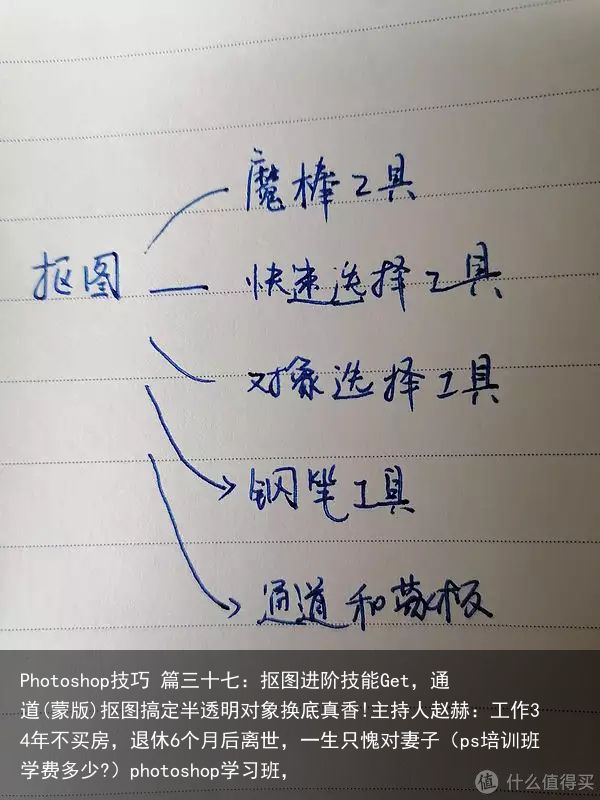 魔棒工具
抠图
快速选择工具
对象选择工具
钢笔工具
通道和蒙板
Photoshop技巧 篇三十七：抠图进阶技能Get，通
道(蒙版)抠图搞定半透明对象换底真香!主持人赵赫：工作3
4年不买房，退休6个月后离世，一生只愧对妻子（ps培训班
学费多少?）photoshop学习班，
值 什么值得买